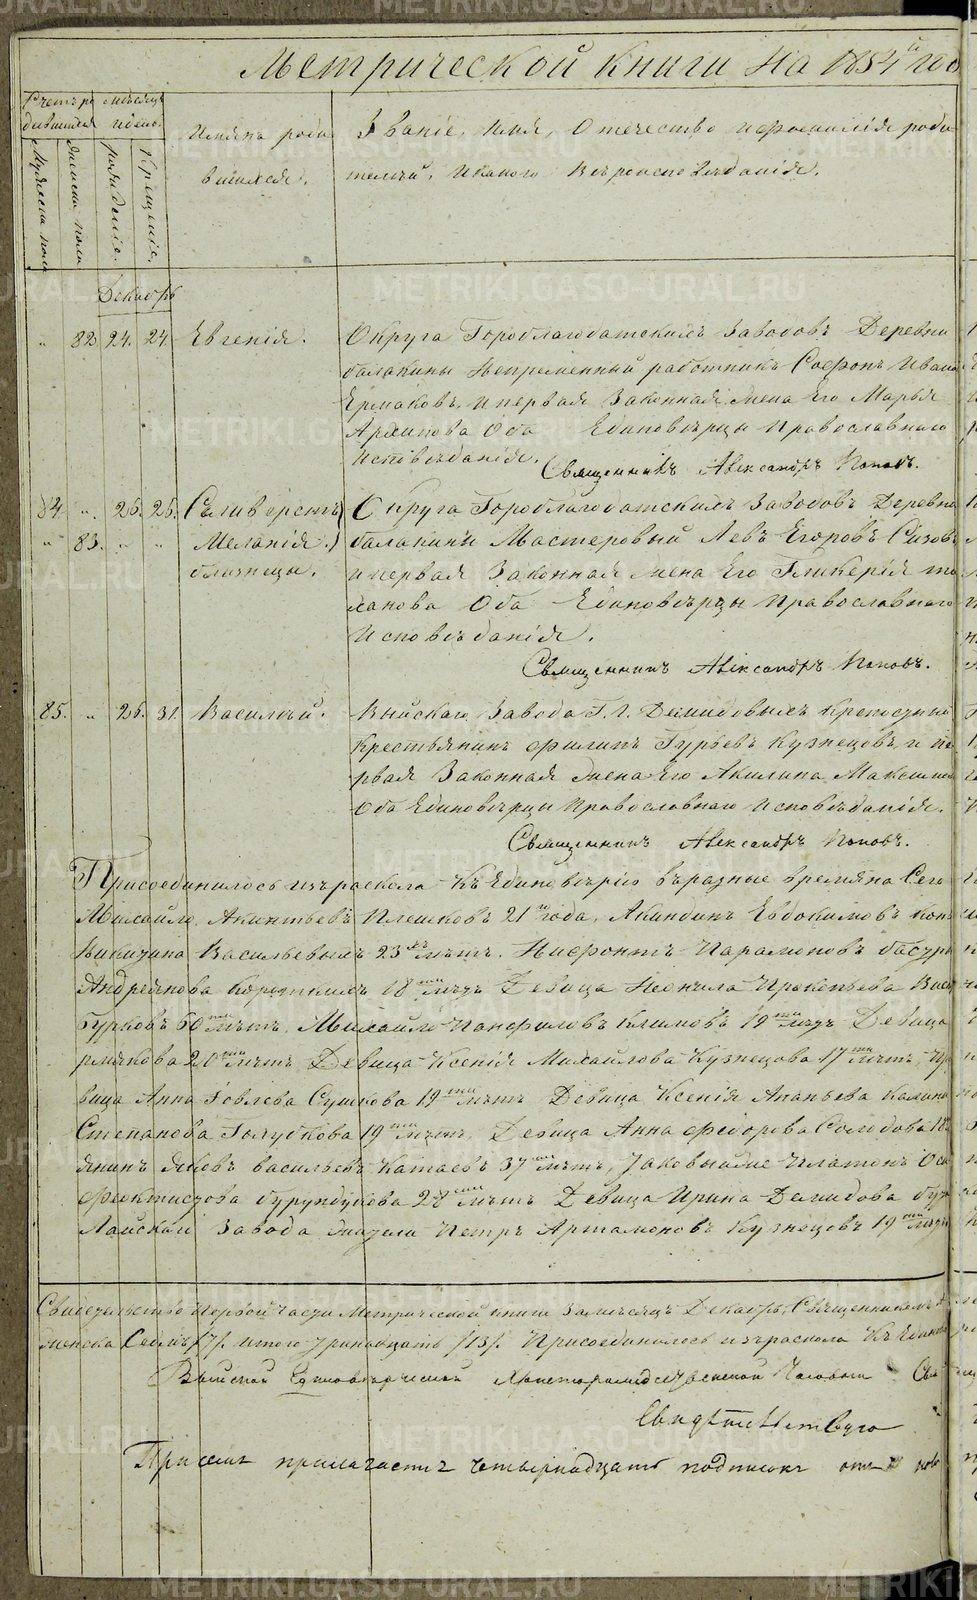 Метрической книги на 1854й го
Счетъ ро дившихся
Мѣсяцъ и день.
Мужеска пола
Женска пола
рожденіе.
Крещеніе.
Имяна роди вшихся.
Званіе, имя, Отечество и фамилія роди
телей, и какого Вѣроисповѣданія.
Декабрь
" 82 24. 24. Евгенія. Округа Гороблагодатскихъ Заводовъ Деревни
балакины Непременный работникъ Софонъ Ивано
Ермаковъ, и первая Законная жена Его Марья
Архипова Оба Единовѣрцы Православнаго
исповѣданія.
Священникъ Александръ Поповъ.
84. " 25. 25. Селиверстъ Округа Гороблагодатскихъ Заводовъ Деревни
" 83. " " Меланія. балакины Мастеровый Левъ Егоровъ Сизовъ
близнецы. и первая Законная жена Его Гликерія
Оба Единовѣрцы Православнаго
Исповѣданія.
Священникъ Александръ Поповъ.
85. " 25. 31. Василій. Выйскаго Завода Г. Г. Демидовыхъ крепостный
крестьянинъ Филипъ Гурьевъ Кузнецовъ, и пе
рвая Законная жена Его Акилина Максимо
Оба Единовѣрцы Православнаго исповѣданія.
Священникъ Александръ Поповъ.
Присоединилось изъ раскола къ Единовѣрію въ разные времяна Сего
Михайло Акинтьевъ Плешковъ 21 года, Акиндинъ Евдокимовъ
Никитина Васильевыхъ 23 лѣтъ, Нифонтъ Парамоновъ
Андреянова 18ти лѣтъ Девица Неонила Прокопьева
бурковъ 60ти лѣтъ, Михайло Панфиловъ Климовъ 19ти лѣтъ Девица
рмякова 20ти лѣтъ, Девица Ксенія Михайлова Кузнецова 17ти лѣтъ,
вица Анна Іовлева Сушкова 19ти лѣтъ Девица Ксенія Ананьева Калина
Степанова Голубкова 19ти лѣтъ, Девица Анна Федорова Солодова 18
янинъ Яковъ Васильевъ Катаевъ 37ми лѣтъ, Таковыйже Платонъ
Феоктистова бурундукова 28ми лѣтъ Девица Ирина Демидова
Лайскаго Завода жители Петръ Артамоновъ Кузнецовъ 19ти лѣтъ
Свидетельство первой части Метрической книги За мѣсяцъ Декабрь, Священникомъ
женска Семь /7/. итого тринадцать /13/. Присоединилось изъ раскола Къ Един
Выйской Единоверческой Христорождественской Часовни
Свидѣтельствую
При семъ прилагается четырнадцать подписокъ отъ ново
METRIKI.GASO-URAL.RU